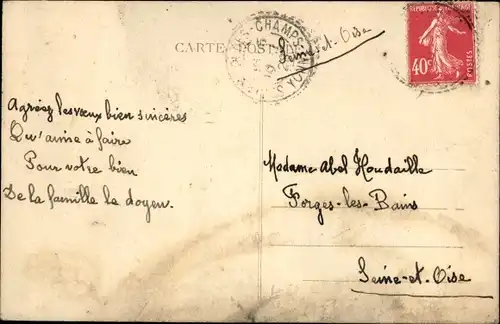 CARTE POSTALE
Seine-et-Oise
RÉPUBLIQUE FRANÇAISE
40c
POSTES
Agréez les vœux bien sincères
Qu'aime à faire
Pour votre bien
De la famille le doyen.
Madame Abel Houdaille
Forges-les-Bains
Seine-et-Oise